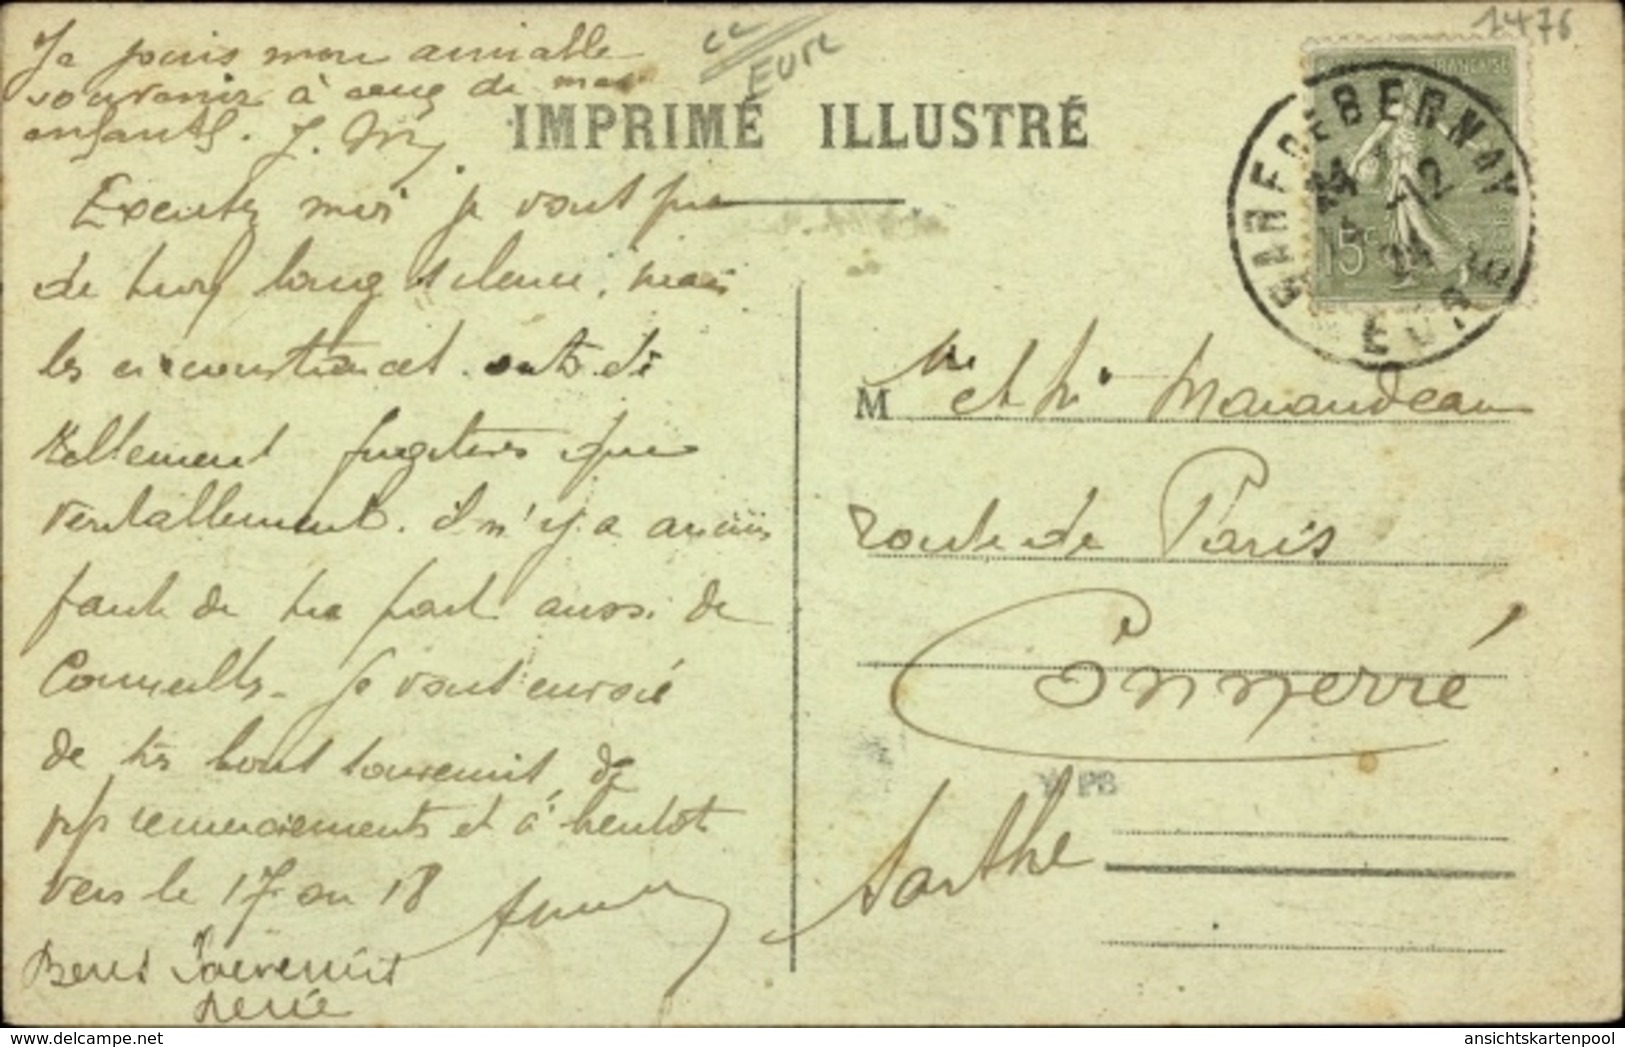 Je joins mon aimable
souvenir à ceux de mes
enfants. J. M.
EURE
1476
IMPRIMÉ ILLUSTRÉ
Excusez moi je vont prie
de long silence, mais
les circonstances ont été
tellement fugitives que
véritablement il n'y a aucune
faute de ma part aussi de
Je vont envoie
de très bons souvenirs, de
remerciements et à bientôt
vers le 17 ou 18
Bons Souvenirs
GARE DE BERNAY
EURE
FRANÇAISE
15c
M et Marandeau
route de Paris
Connerré
Sarthe
PB
ansichtskartenpool